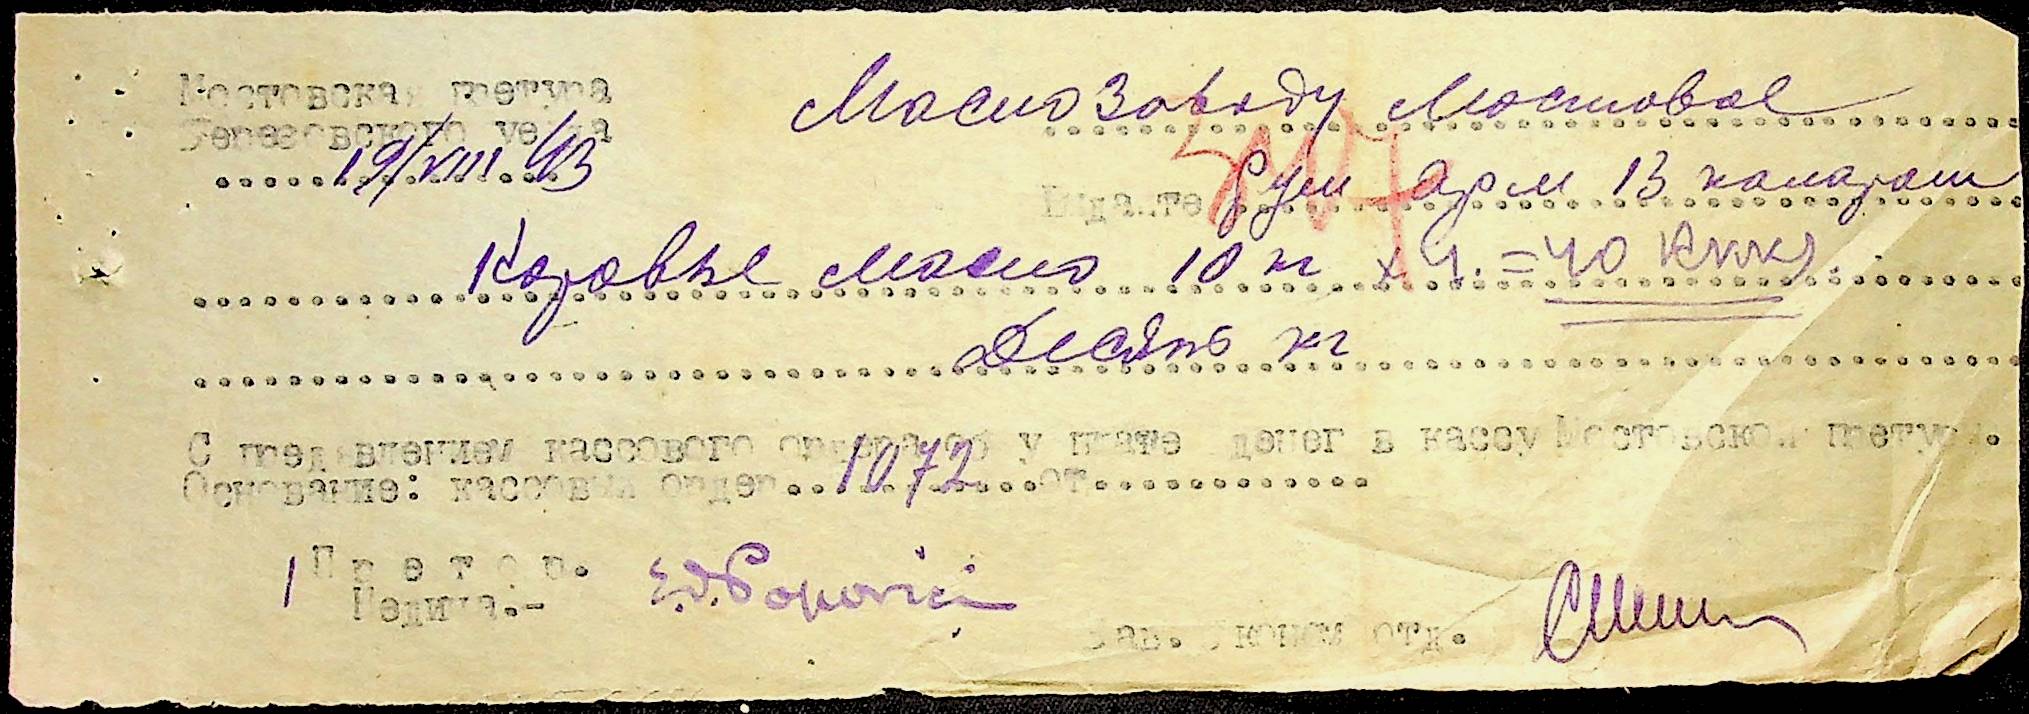 Мостовская претура
Березовского уезда
19/VIII 43
Маслозаводу Мостовое
Выдайте Рум арм 13 каларош
Коровье масло 10 кг х 4. = 40
Десять кг
С пред'явлением кассового ордера об уплате денег в кассу Мостовской претуры.
Основание: кассовый ордер..1072.....от.............
Претор.
Е.Д. Popovici
Зав. Эконом отд.